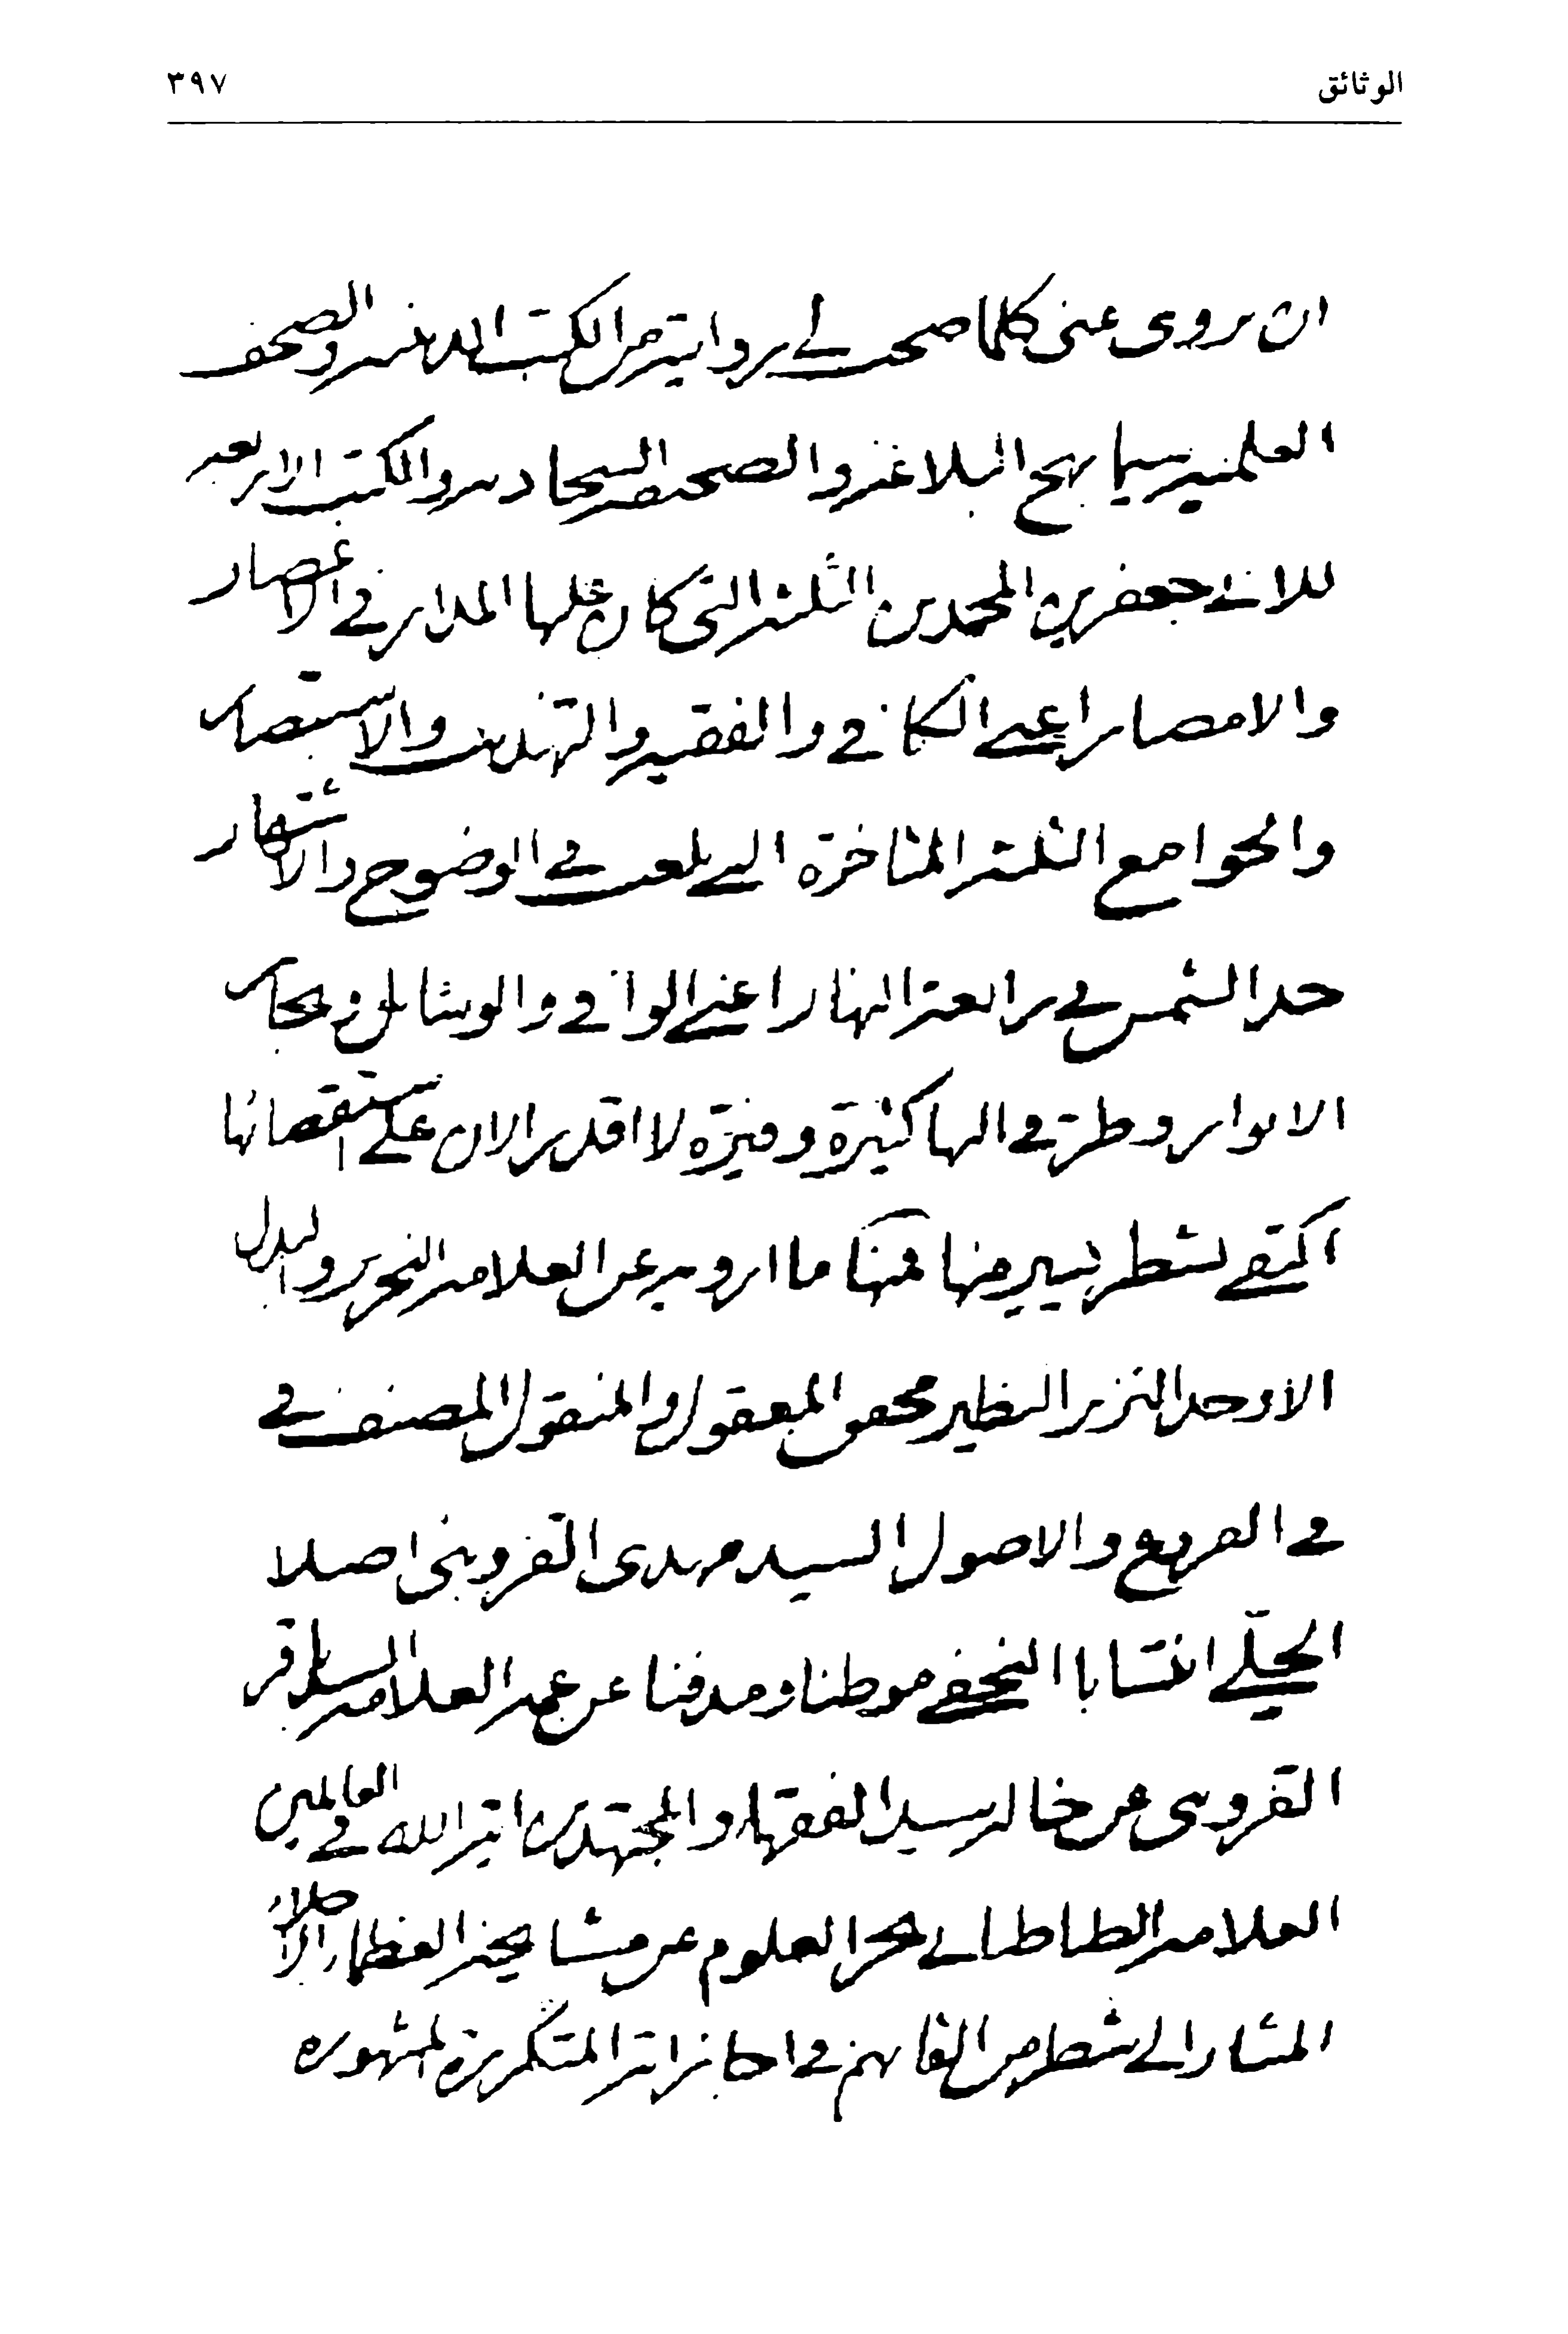 الوثائق ٣٩٧
ان يروى عنى كلما صحت لي روايته من الكتب الدينية والصحف
العلمية سيما نهج البلاغة والصحيفة السجادية والكتب الاربعة
للابي جعفرين المحمدين الثلثة التي كان عليها المدار في الاعصار
والامصار اعني الكافي والفقيه والتهذيب والاستبصار
والجوامع الثلثة المتاخرة التي بلغت في الوضوح والاشتهار
حد الشمس في رابعة النهار اعني الوافي والوسائل وبحار
الانوار وطرقي اليها كثيرة وفيرة لا اقدر الان على استقصائها
اكتفي بشطر يسير منها فمنها ما ارويه عن العلامة النحرير والبدل
الاوحد النزر النظير محقق المعقول والمنقول المصنف في
في الفروع والاصول السيد مهدى القزوينى اصلا
الحلّي انتسابا النجفي موطنا ومدفنا عن عمه العلامة السيد باقر
القزوينى عن خاله سيد الفقهاء والمجتهدين اية الله في العالمين
العلامة الطباطبائي بحر العلوم عن مشايخه العظام الاجلاء
المشار الى شطر من القابهم في اجازاته المتكررة المشهورة